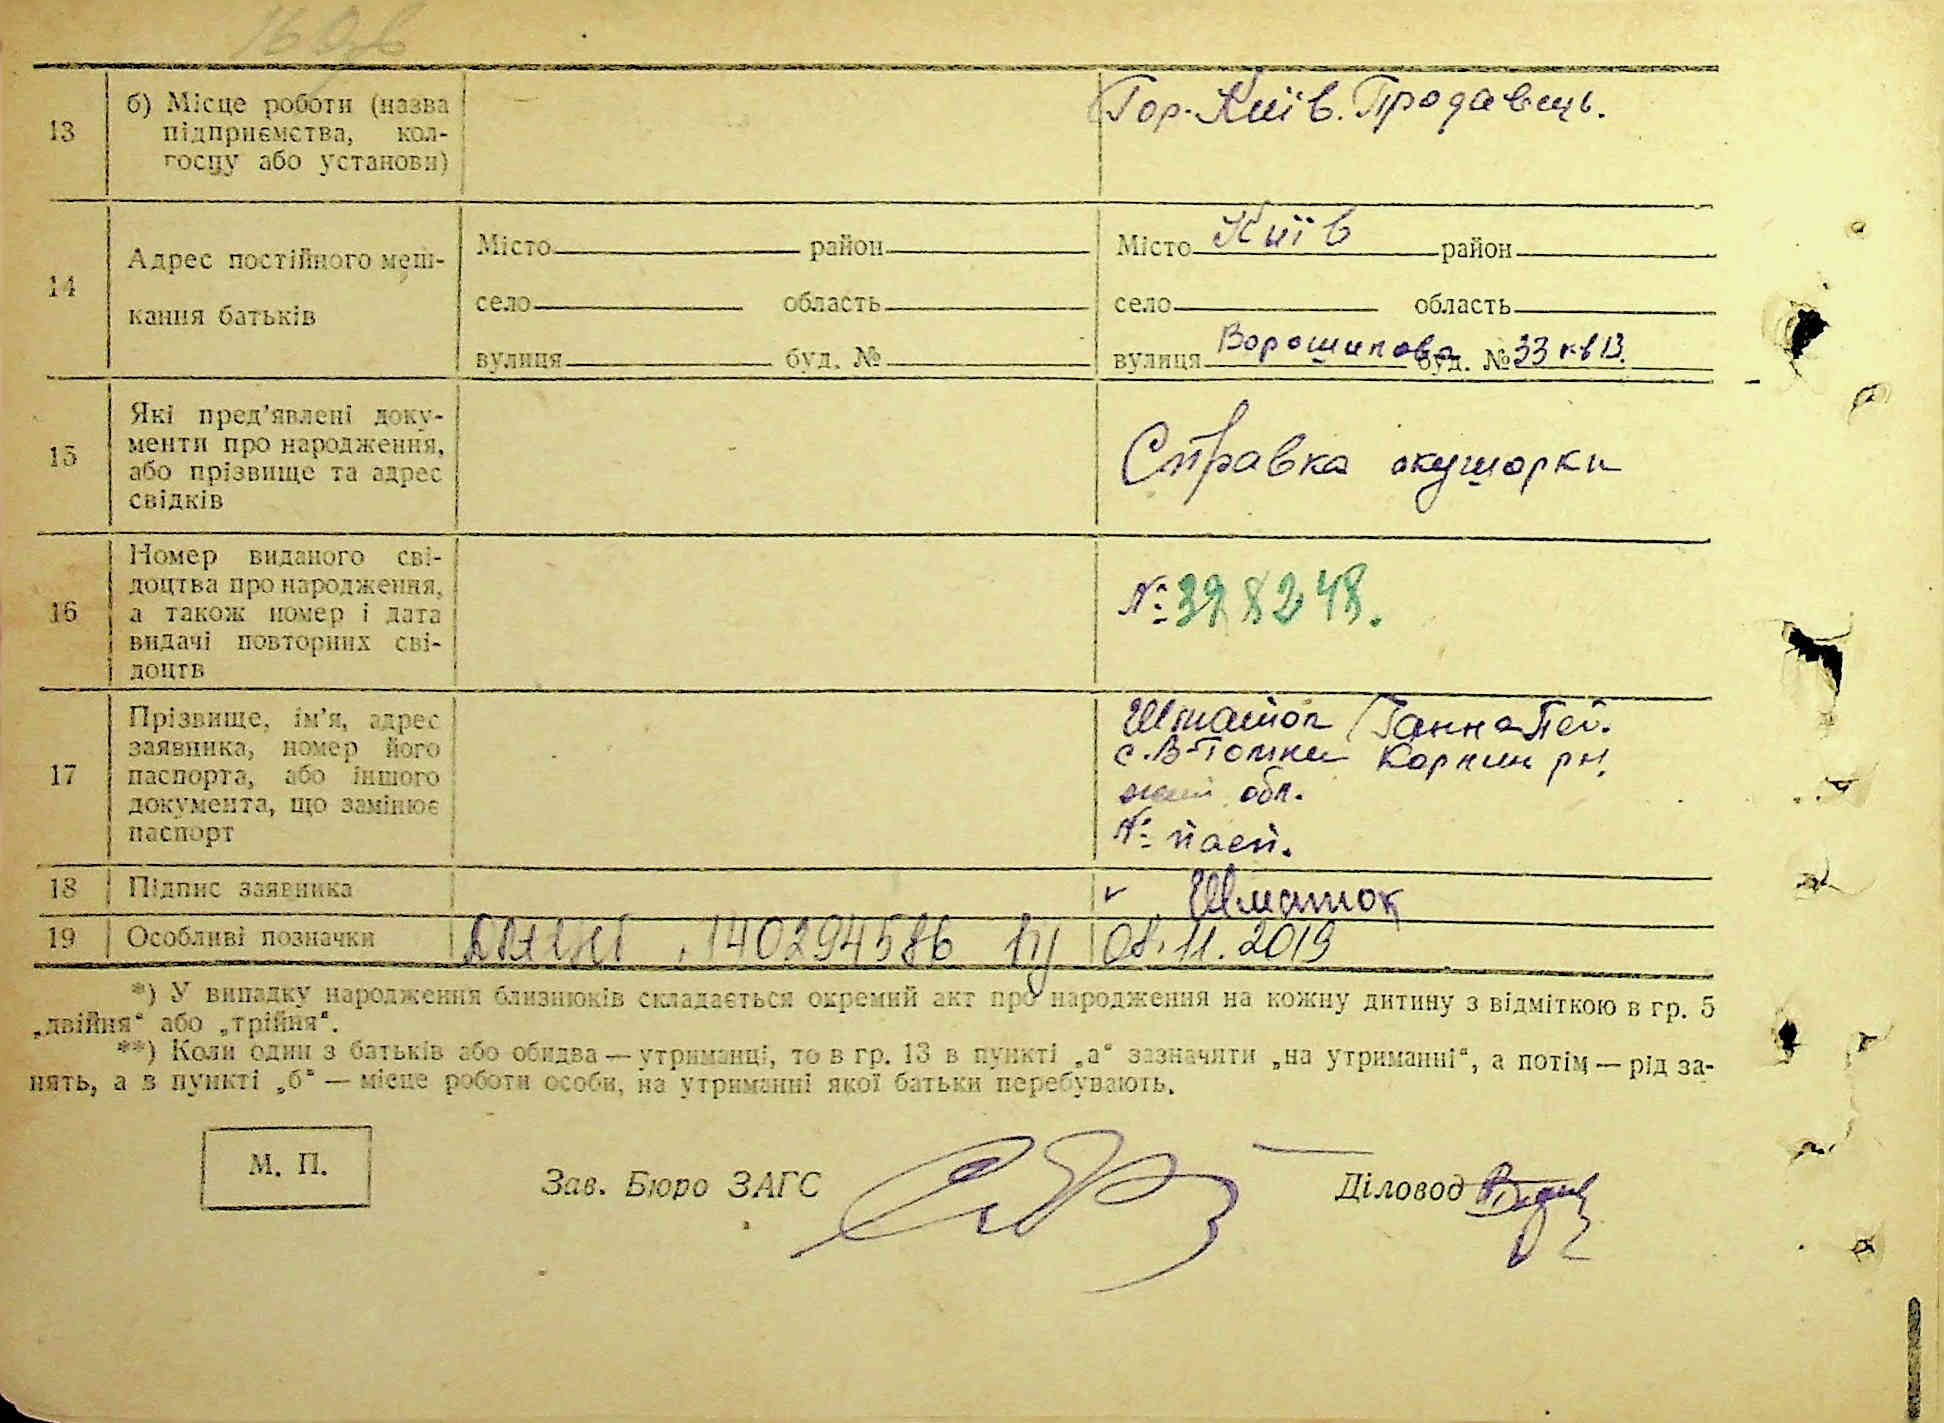 13
б) Місце роботи (назва
підприємства, кол-
госпу або установи)
Гор. Київ. Продавець.
14
Адрес постійного меш-
кання батьків
Місто район
село область
вулиця буд. №
Місто Київ район
село область
вулиця Ворошилова буд. № 33 кв 13.
15
Які пред'явлені доку-
менти про народження,
або прізвище та адрес
свідків
Справка акушорки
16
Номер виданого сві-
доцтва про народження,
а також номер і дата
видачі повторних сві-
доцтв
№ 398248.
17
Прізвище, ім'я, адрес
заявника, номер його
паспорта, або іншого
документа, що замінює
паспорт
Шматок Ганна
с. В-Голяки Корнин рн.
обл.
№ пасп.
18
Підпис заявника
Шматок
19
Особливі позначки
140294586 08.11.2019
*) У випадку народження близнюків складається окремий акт про народження на кожну дитину з відміткою в гр. 5
„двійня“ або „трійня“.
**) Коли один з батьків або обидва — утриманці, то в гр. 13 в пункті „а“ зазначити „на утриманні“, а потім — рід за-
нять, а в пункті „б“ — місце роботи особи, на утриманні якої батьки перебувають.
М. П.
Зав. Бюро ЗАГС
Діловод